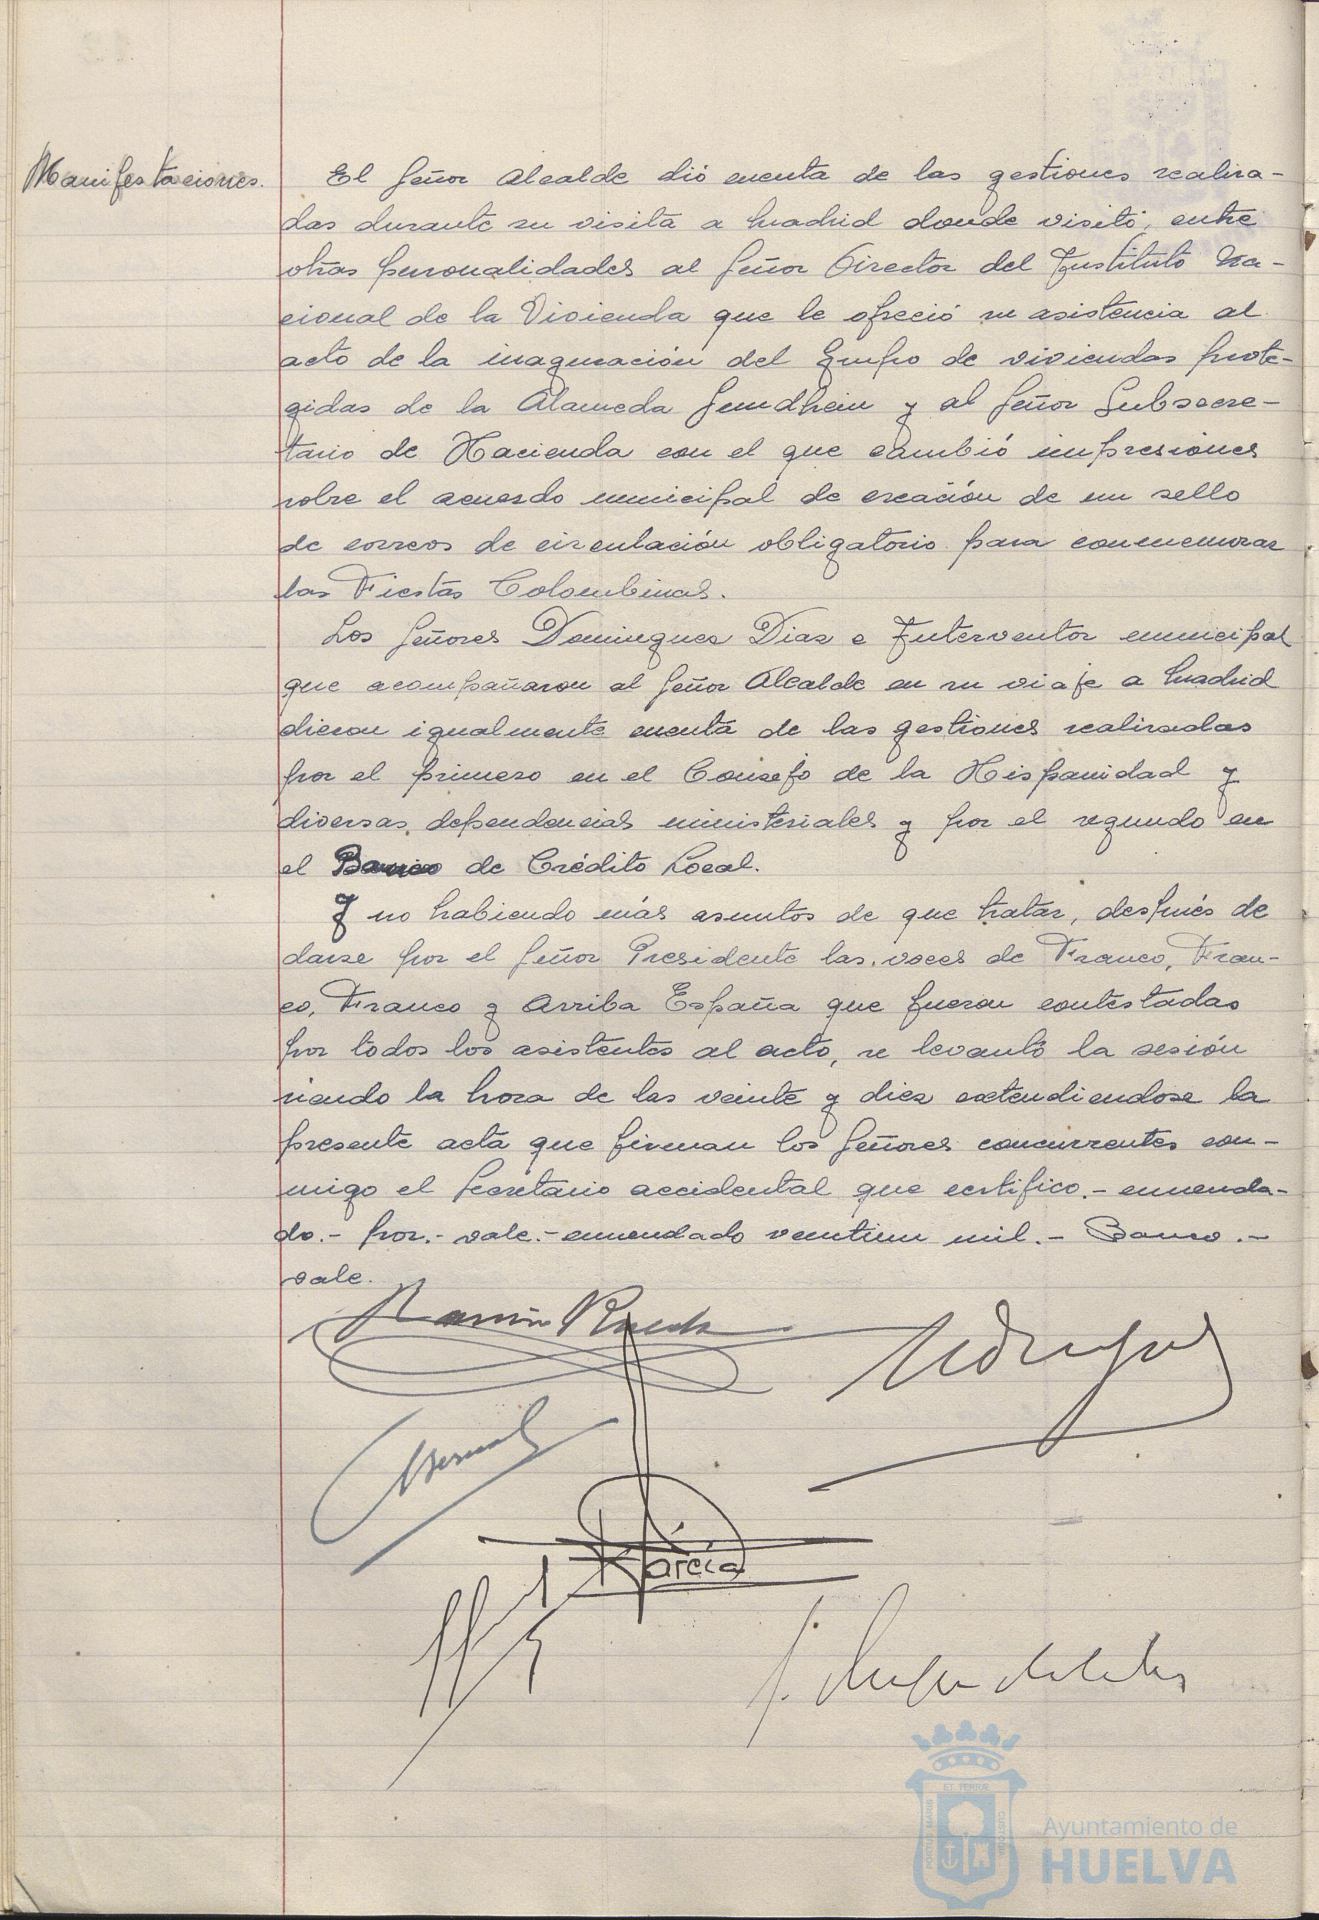 Manifestaciones.
El Señor Alcalde dió cuenta de las gestiones realiza-
das durante su visita a Madrid donde visitó, entre
otras personalidades al Señor Director del Instituto Na-
cional de la Vivienda que le ofreció su asistencia al
acto de la inaguración del Grupo de viviendas prote-
gidas de la Alameda Sundhein y al Señor Subsecre-
tario de Hacienda con el que cambió impresiones
sobre el acuerdo municipal de creación de un sello
de correos de circulación obligatorio para conmemorar
las Fiestas Colombinas.
Los Señores Dominguez Diaz e Interventor municipal
que acompañaron al Señor Alcalde en su viaje a Madrid
dieron igualmente cuenta de las gestiones realizadas
por el primero en el Consejo de la Hispanidad y
diversas dependencias ministeriales y por el segundo en
el Banco de Crédito Local.
Y no habiendo más asuntos de que tratar, después de
darse por el Señor Presidente las voces de Franco, Fran-
co, Franco y Arriba España que fueron contestadas
por todos los asistentes al acto, se levantó la sesión
siendo la hora de las veinte y diez extendiendose la
presente acta que firman los Señores concurrentes con-
migo el Secretario accidental que certifico.- enmenda-
do.- por.- vale.- enmendado ventium mil.- Banco.-
vale.
Ramón Rueda
Bernal
García
ET TERRÆ
PORTUS MARIS
CUSTODIA
Ayuntamiento de
HUELVA